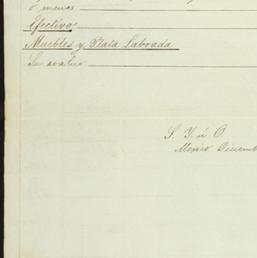 ó menos
Efectivo
Muebles y Plata Labrada
Su avaluo
S. Y. ú O.
Mexico Diciemb